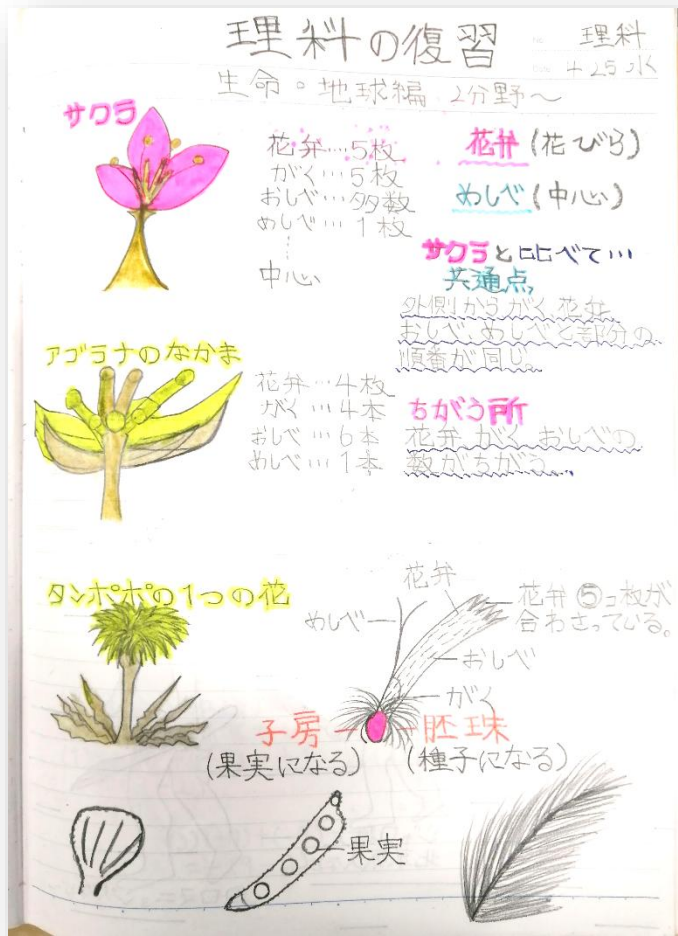 理科の復習
理科
4 25 水
生命・地球編 2分野～
サクラ
花弁…5枚
がく…5枚
おしべ…多数
めしべ…1枚
中心
花弁(花びら)
めしべ(中心)
サクラと比べて…
共通点
外側からがく、花弁
おしべ、めしべと部分の
順番が同じ。
アブラナのなかま
花弁…4枚
がく…4本
おしべ…6本
めしべ…1本
ちがう所
花弁、がく、おしべの
数がちがう。
タンポポの1つの花
花弁
めしべ
花弁⑤コ枚が
合わさっている。
おしべ
がく
子房
胚珠
(果実になる)
(種子になる)
果実